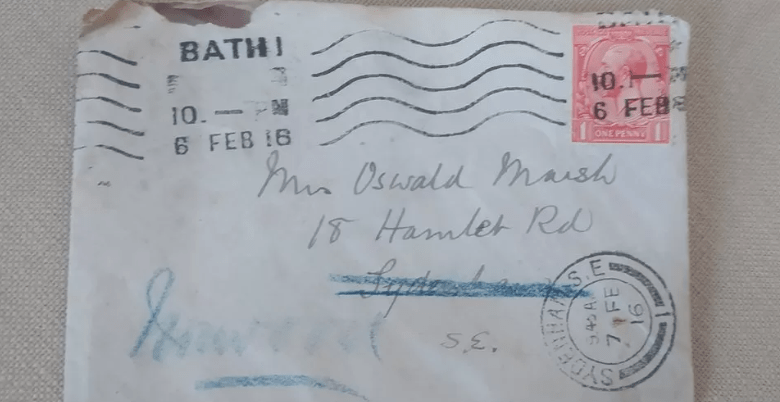 BATH 1
10. — PM
6 FEB 16
10.1 —
6 FEB
1 ONE PENNY 1
Mrs Oswald Marsh
18 Hamlet Rd
Sydenham
S.E.
SYDENHAM S.E
9.45 A
7 FE
16
1